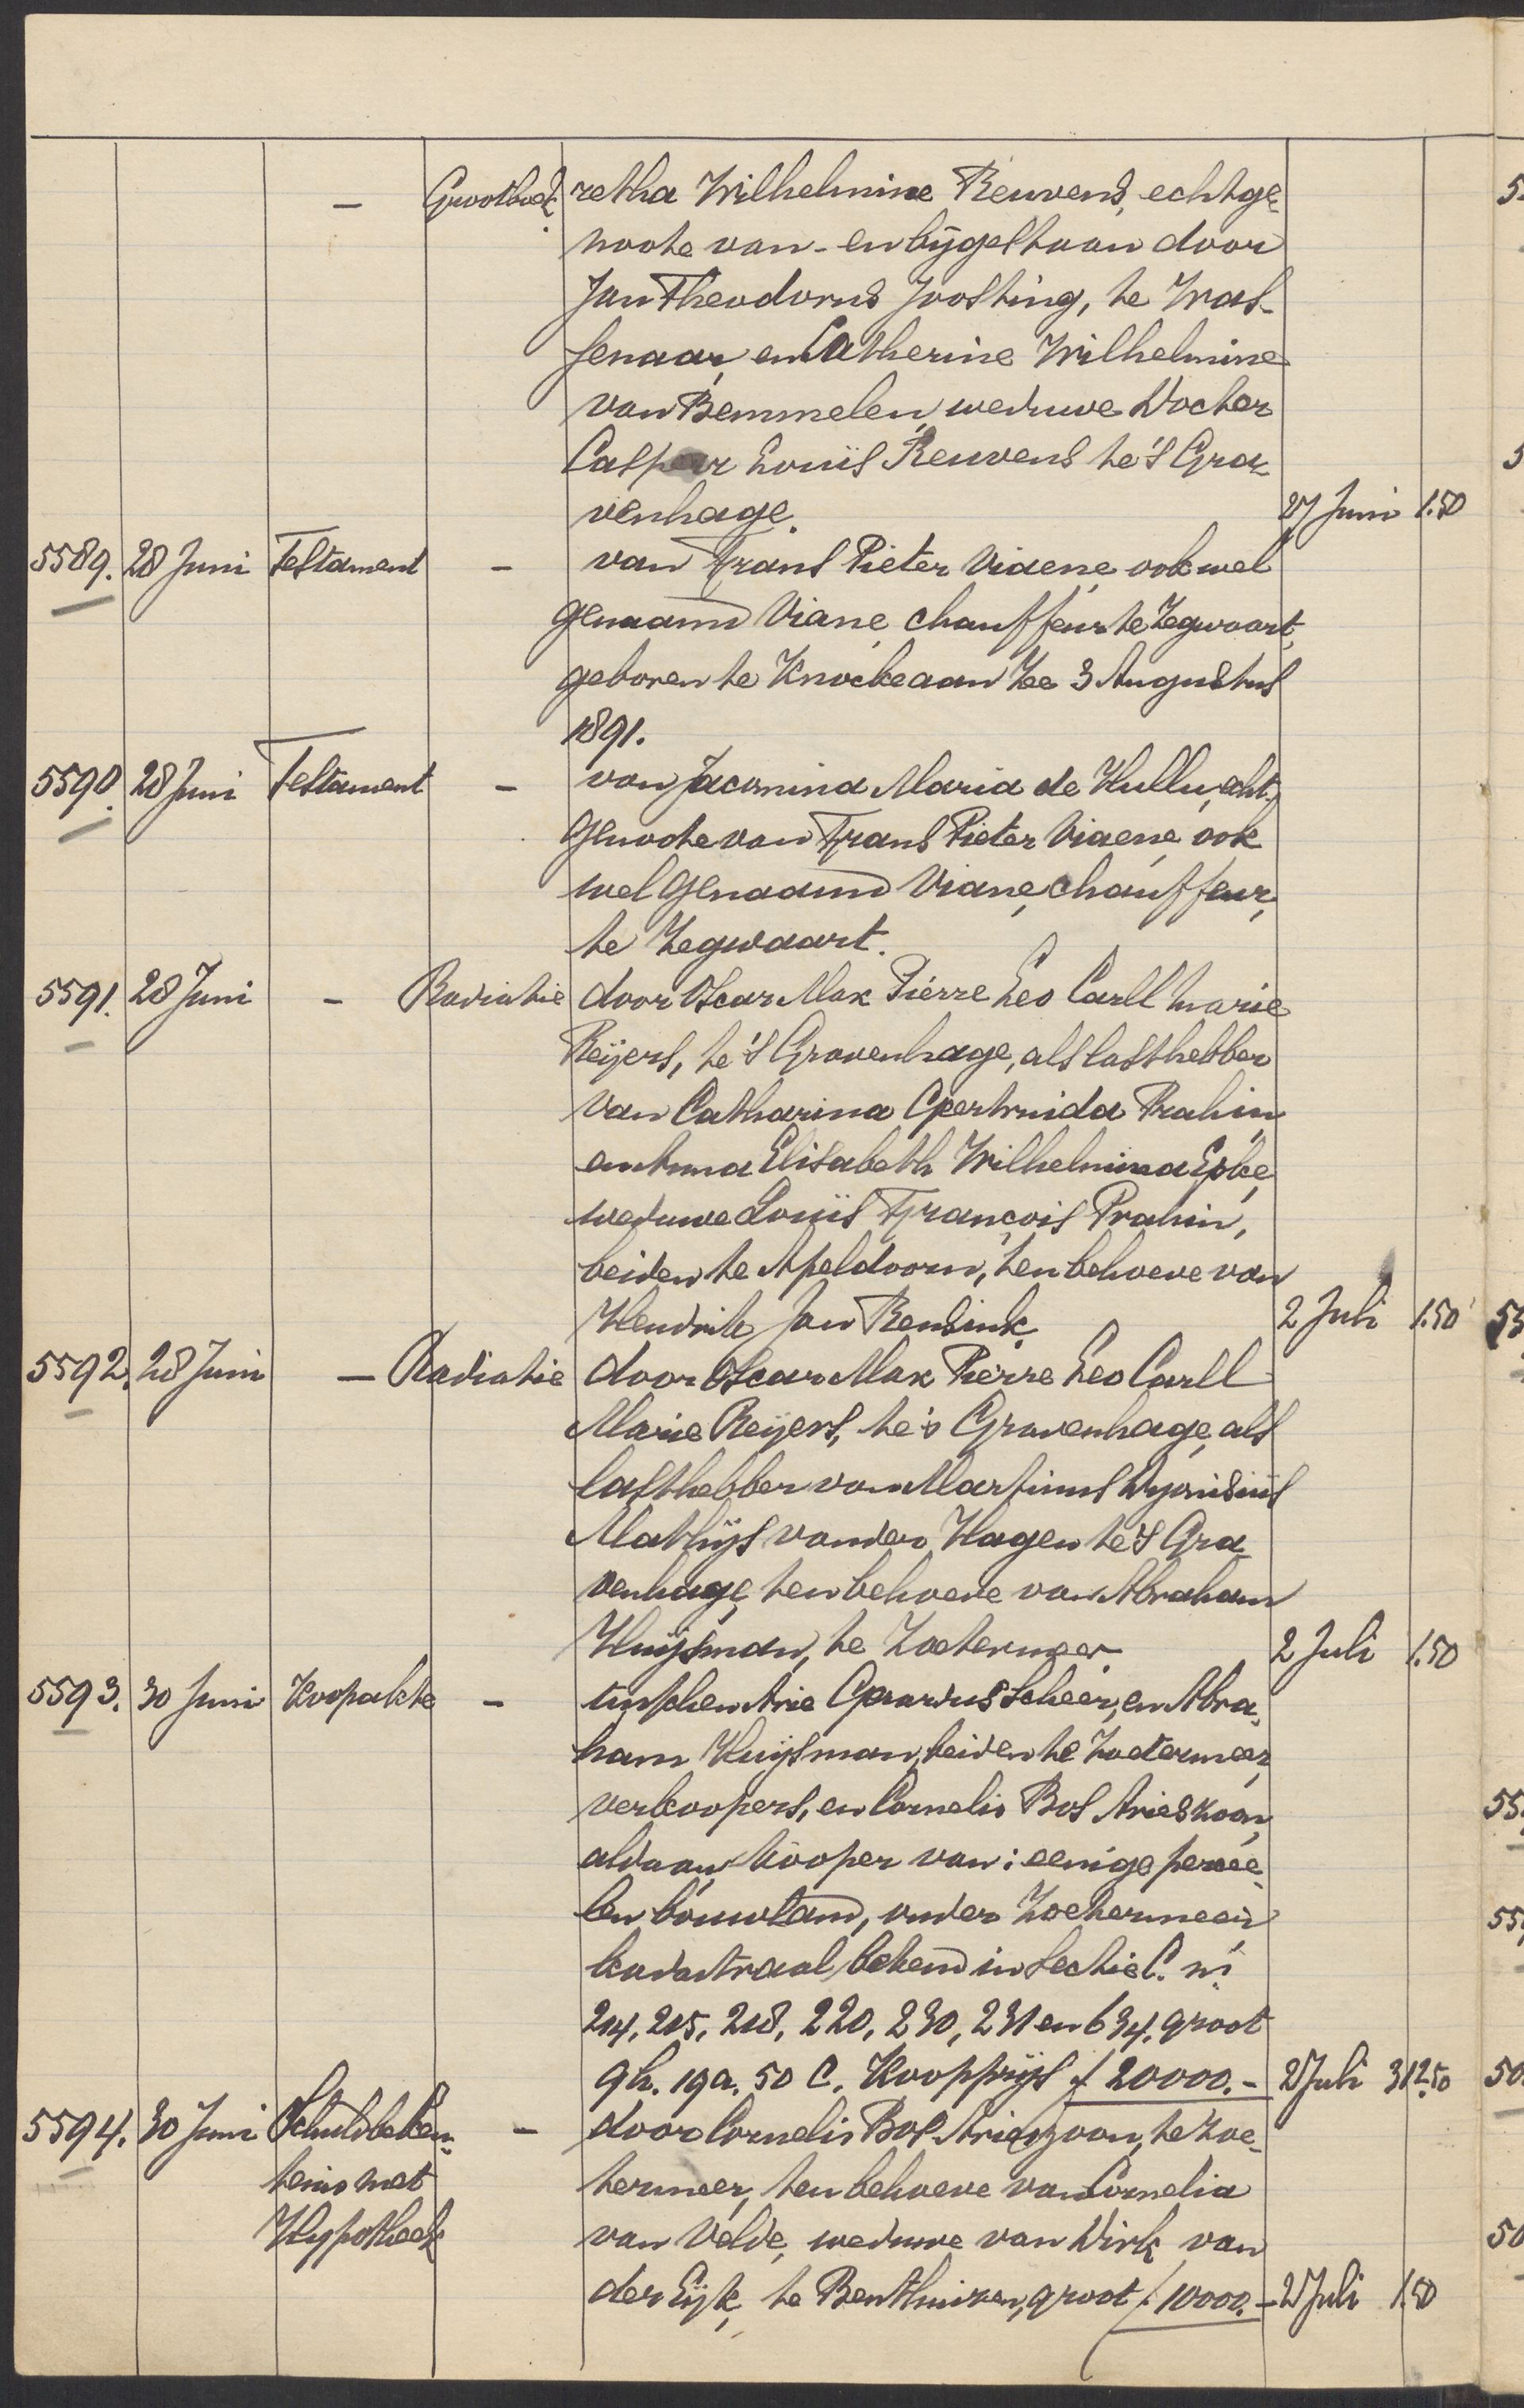 — Grootboek. retha Wilhelmine Reuvens, echtge-
noote van- en bijgestaan door
Jan Theodorus Joosting, te Was-
senaar, en Catherine Wilhelmine
van Bemmelen, weduwe Docter
Caspar Louïs Reuvens te 's Gra-
venhage. 27 Juni 1.50
5589. 28 Juni Testament — van Frans Pieter Viaene, ook wel
genaamd Viane, chauffeur te Zegwaart,
geboren te Knocke aan Zee 3 Augustus
1891.
5590. 28 Juni Testament — van Jacomina Maria de Hullu, echt-
genoote van Frans Pieter Viaene, ook
wel genaamd Viane, chauffeur,
te Zegwaart.
5591. 28 Juni — Radiatie door Oscar Max Pierre Leo Carll Marie
Reijers, te 's Gravenhage, als lasthebber
van Catharina Geertruida Prahin
en Anna Elisabeth Wilhelmina Epke,
weduwe Louïs François Prahin,
beiden te Apeldoorn, ten behoeve van
Hendrik Jan Rensink. 2 Juli 1.50
5592. 28 Juni — Radiatie door Oscar Max Pierre Leo Carll
Marie Reijers, te 's Gravenhage, als
lasthebber van Martinus Dyonisiüs
Mathijs van der Hagen te 's Gra-
venhage, ten behoeve van Abraham
Huijsman, te Zoetermeer. 2 Juli 1.50
5593. 30 Juni Koopakte — tusschen Arie Gerardus Scheer, en Abra-
ham Huijsman, beiden te Zoetermeer,
verkoopers, en Cornelis Bos Arieszoon,
aldaar, kooper van: eenige percee-
len bouwland, onder Zoetermeer
kadastraal bekend in Sectie C. nrs
214, 215, 218, 220, 230, 231 en 634, groot
9 h. 19 a. 50 c. Koopprijs f 20000.- 2 Juli 312.50
5594. 30 Juni Schuldbeken- — door Cornelis Bos Arieszoon, te Zoe-
tenis met termeer, ten behoeve van Cornelia
Hypotheek van Velde, weduwe van Dirk van
der Eijk, te Benthuizen, groot f 10000.- 2 Juli 1.50